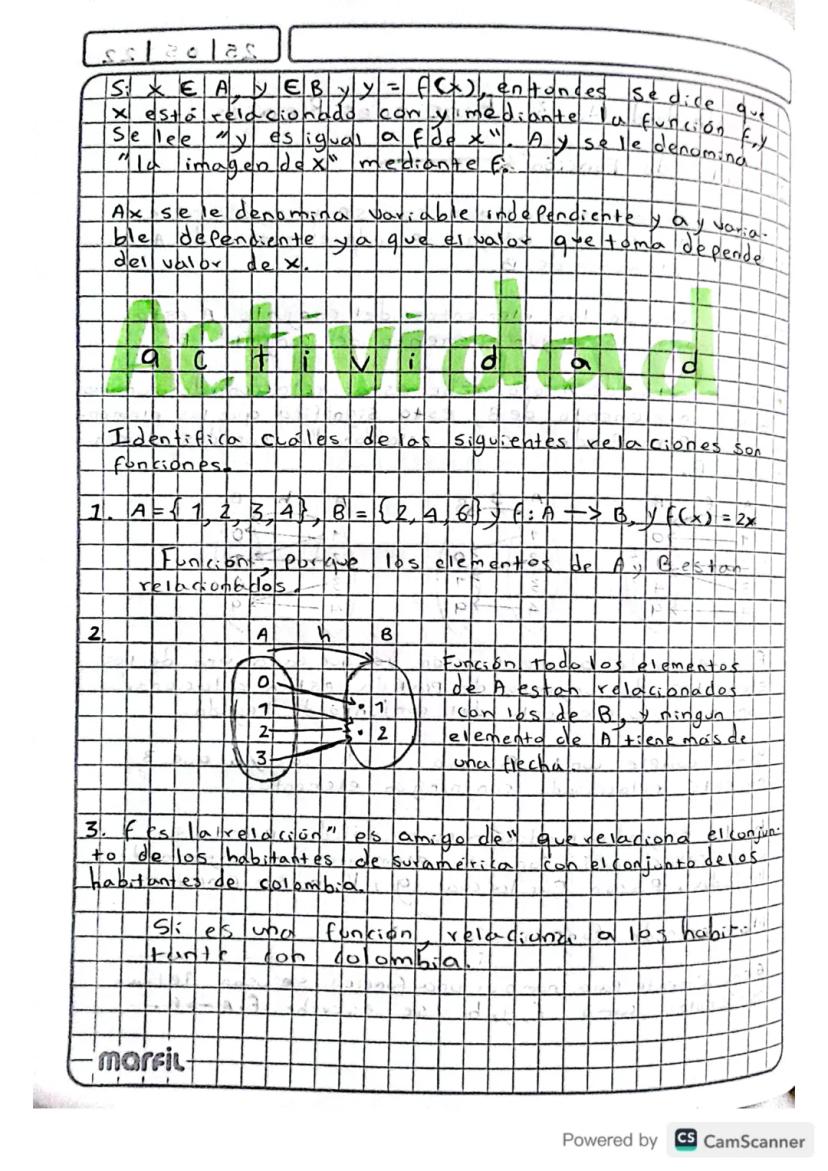 25 | 05 | 22
Si x ∈ A, y ∈ B y y = f(x), entonces se dice que
x está relacionado con y mediante la función f, y
se lee "y es igual a f de x". A y se le denomina
"la imagen de x" mediante f.
A x se le denomina variable independiente y a y varia-
ble dependiente ya que el valor que toma depende
del valor de x.
Actividad
a c t i v i d a d
Identifica cuáles de las siguientes relaciones son
funciones.
1. A = {1, 2, 3, 4}, B = {2, 4, 6} y f: A -> B, y f(x) = 2x
Función, porque los elementos de A y B estan
relacionados.
2.
A h B
0
1 . 1
2 . 2
3
Función todo los elementos
de A estan relacionados
con los de B, y ningun
elemento de A tiene más de
una flecha.
3. f es la relación "es amigo de" que relaciona el conjun-
to de los habitantes de suramérica con el conjunto de los
habitantes de colombia.
Si es una función, relaciona a los habi-
tante con colombia.
marfil
Powered by CS CamScanner